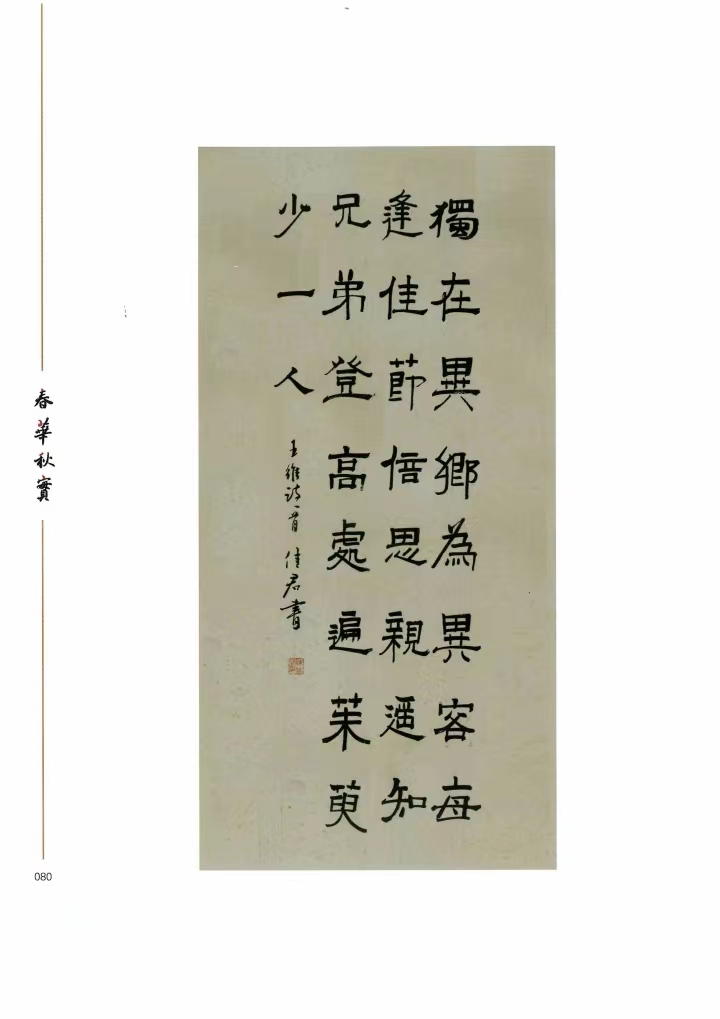 獨在異鄉為異客每
逢佳節倍思親遥知
兄弟登高處遍茱萸
少一人
王維詩一首 佳君書
春華秋實
080